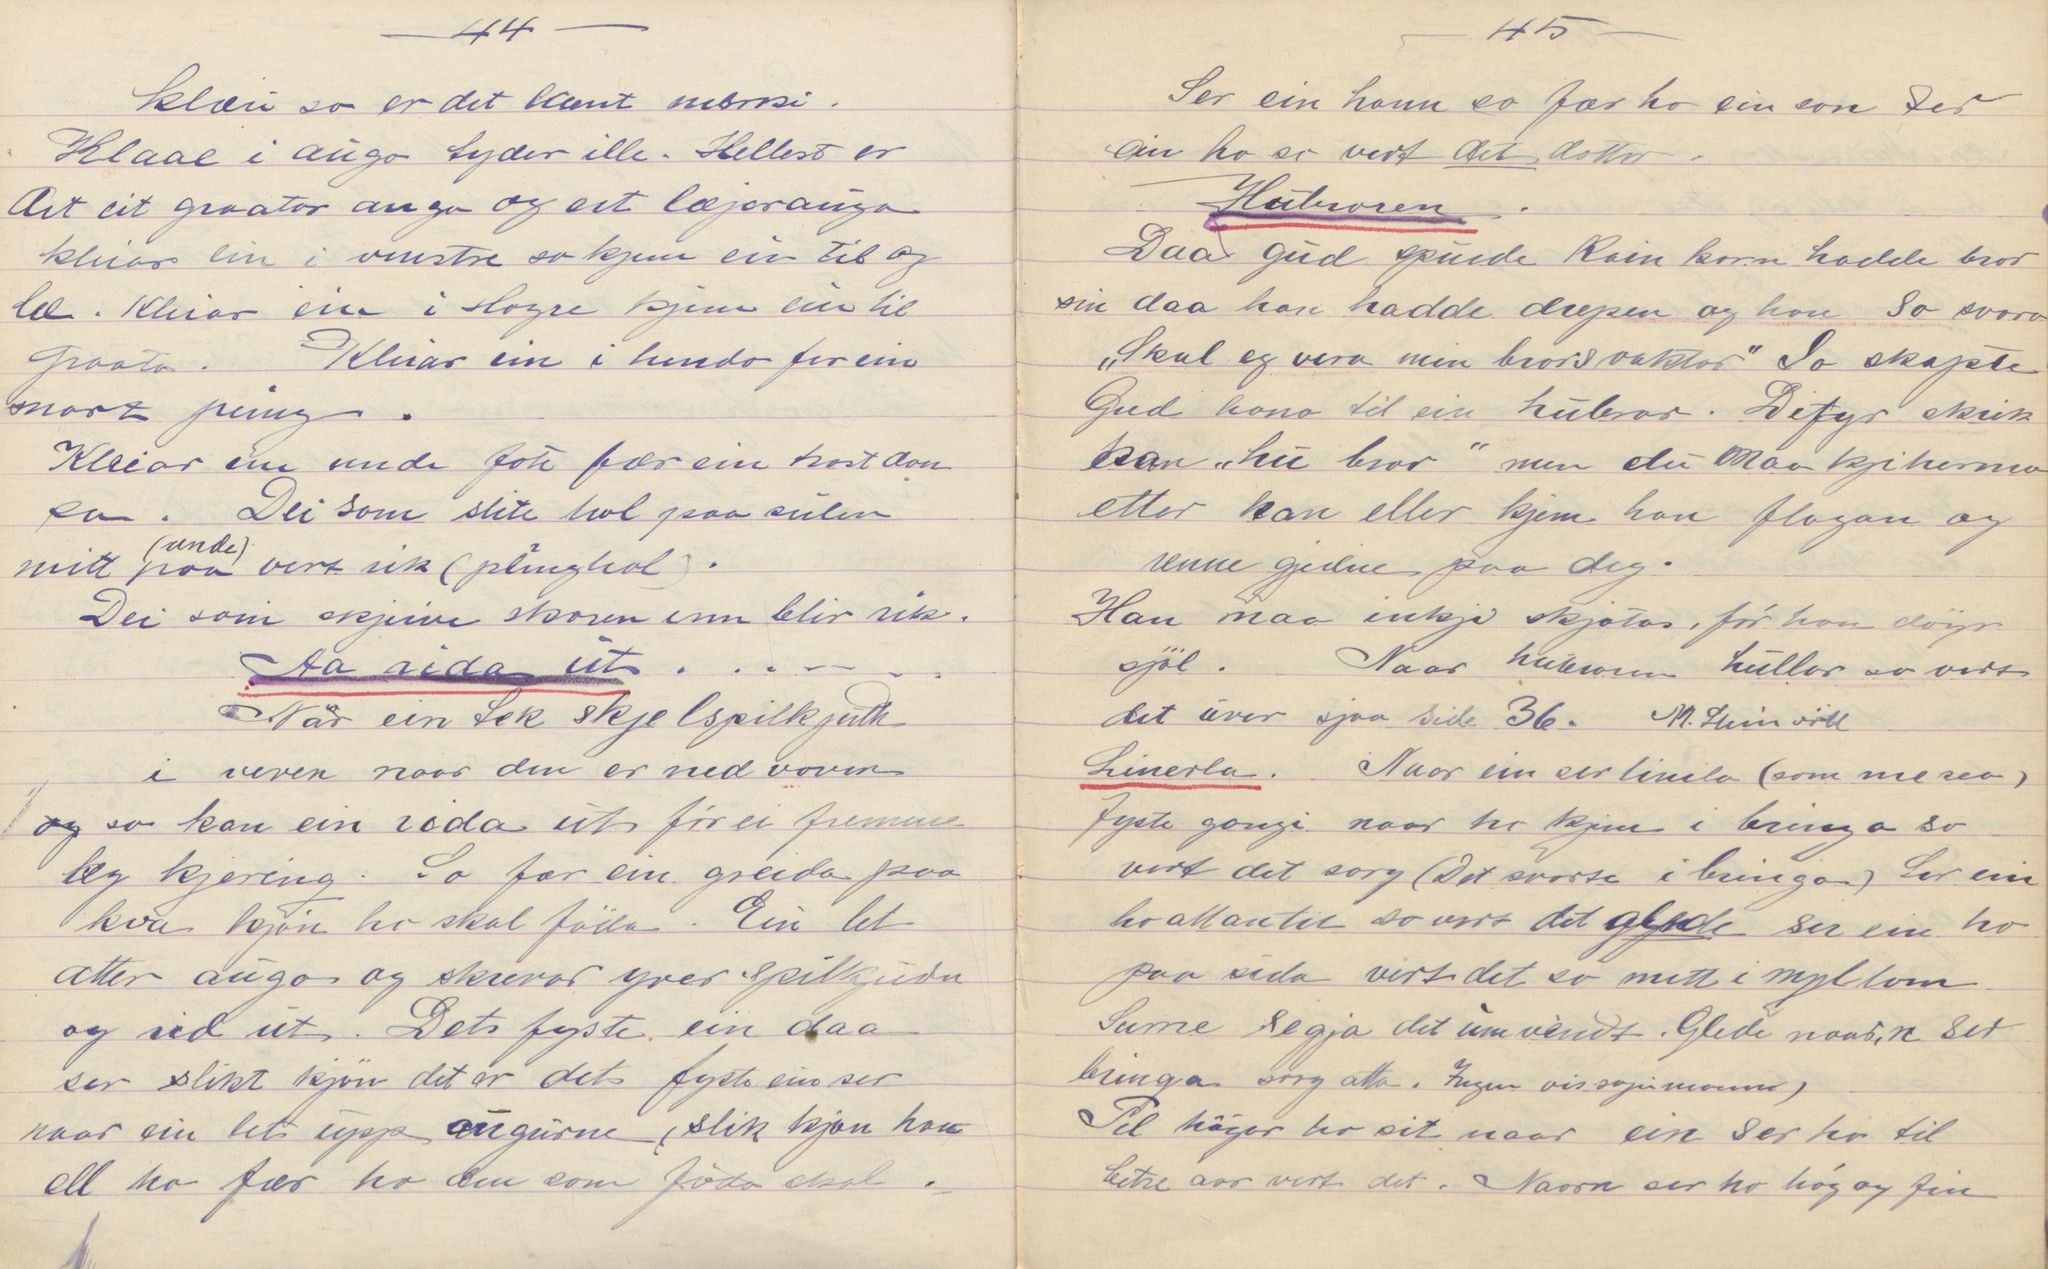 — 44 —
klæi so er det laent merki.
Klaae i augo tyder ille. Hellest er
det eit graatar auga og eit læjarauga
kleiar ein i venstre so kjem ein til og
læ. Kleiar ein i Høgre kjem ein til
graata. Kleiar ein i hendo fer ein
mart peing.
Kleiar ein unde føte fær ein snart dan
sa. Dei som slite hol paa sulen
mitt paa (unde) vert rik (pänghol).
Dei som skjeive skoren enn blir rik.
Aa rida út. . . — — .
När ein tek skjelspilkjutl
i veven naar den er nedvoven
og so kan ein rida út fór ei fremme
leg kjering. So fær ein greida paa
kva kjön ho skal föda. Ein let
atter augo og skrevar yver spilkjudn
og rid út. Det fyste ein daa
ser slikt kjön det er det fyste ein ser
naar ein let upp augurne, slik kjøn han
ell ho fær ho den som föda skal.
— 45 —
Ser ein hann so fær ho ein son ser
ein ho so vert det dotter.
Hubroren.
Daa gud spurde Kain korn hadde bror
sin daa han hadde drepen og han so svara
„Skal eg vera min brors vaktar" So skapte
Gud hano til ein hubror. Difyr skrik
han „hu bror" men du maa kji herma
etter han eller kjem han flogan og
renne gjedne paa deg.
Han maa inkje skjotas, för han döyr
sjöl. Naar hubroren hullar so vert
det uver sjaa side 36. M. Heinvöll
Linerla. Naar ein ser linila (som me sea)
fyste gongi naar ho kjem i bringa so
vert det sorg (Det svarte i bringa) Ser ein
ho attantil so vert det glede ser ein ho
paa sida vert det so mitt i myllom
Sume segja det umvendt. Glede naar,n ser
bringa sorg atta. Ingen vis
Til högar ho sit naar ein ser ho til
betre aar vert det. Naarn ser ho hóg og fin